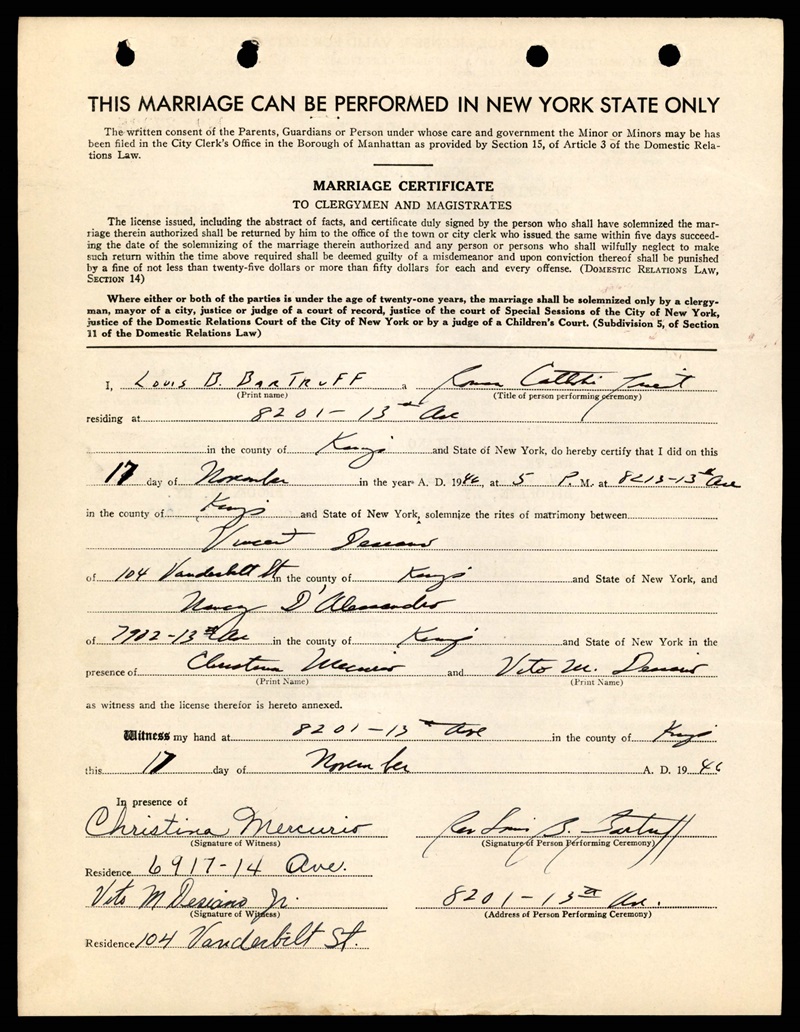 THIS MARRIAGE CAN BE PERFORMED IN NEW YORK STATE ONLY
The written consent of the Parents, Guardians or Person under whose care and government the Minor or Minors may be has
been filed in the City Clerk's Office in the Borough of Manhattan as provided by Section 15, of Article 3 of the Domestic Rela-
tions Law.
MARRIAGE CERTIFICATE
TO CLERGYMEN AND MAGISTRATES
The license issued, including the abstract of facts, and certificate duly signed by the person who shall have solemnized the mar-
riage therein authorized shall be returned by him to the office of the town or city clerk who issued the same within five days succeed-
ing the date of the solemnizing of the marriage therein authorized and any person or persons who shall wilfully neglect to make
such return within the time above required shall be deemed guilty of a misdemeanor and upon conviction thereof shall be punished
by a fine of not less than twenty-five dollars or more than fifty dollars for each and every offense. (DOMESTIC RELATIONS LAW,
SECTION 14)
Where either or both of the parties is under the age of twenty-one years, the marriage shall be solemnized only by a clergy-
man, mayor of a city, justice or judge of a court of record, justice of the court of Special Sessions of the City of New York,
justice of the Domestic Relations Court of the City of New York or by a judge of a Children's Court. (Subdivision 5, of Section
11 of the Domestic Relations Law)
I, LOUIS B. BARTRUFF a Roman Catholic Priest
(Print name) (Title of person performing ceremony)
residing at 8201-13th Ave
in the county of Kings and State of New York, do hereby certify that I did on this
17 day of November in the year A. D. 1946, at 5 P. M. at 8213-13th Ave
in the county of Kings and State of New York, solemnize the rites of matrimony between
Vincent Desiano
of 104 Vanderbilt St in the county of Kings and State of New York, and
Nancy D'Alessandro
of 7902-13th Ave in the county of Kings and State of New York in the
presence of Christina Mercurio and Vito M. Desiano
(Print Name) (Print Name)
as witness and the license therefor is hereto annexed.
Witness my hand at 8201-13th Ave in the county of Kings
this 17 day of November A. D. 1946
In presence of
Christina Mercurio Rev Louis B. Bartruff
(Signature of Witness) (Signature of Person Performing Ceremony)
Residence 6917-14 Ave.
Vito M Desiano Jr. 8201-13th Ave.
(Signature of Witness) (Address of Person Performing Ceremony)
Residence 104 Vanderbilt St.